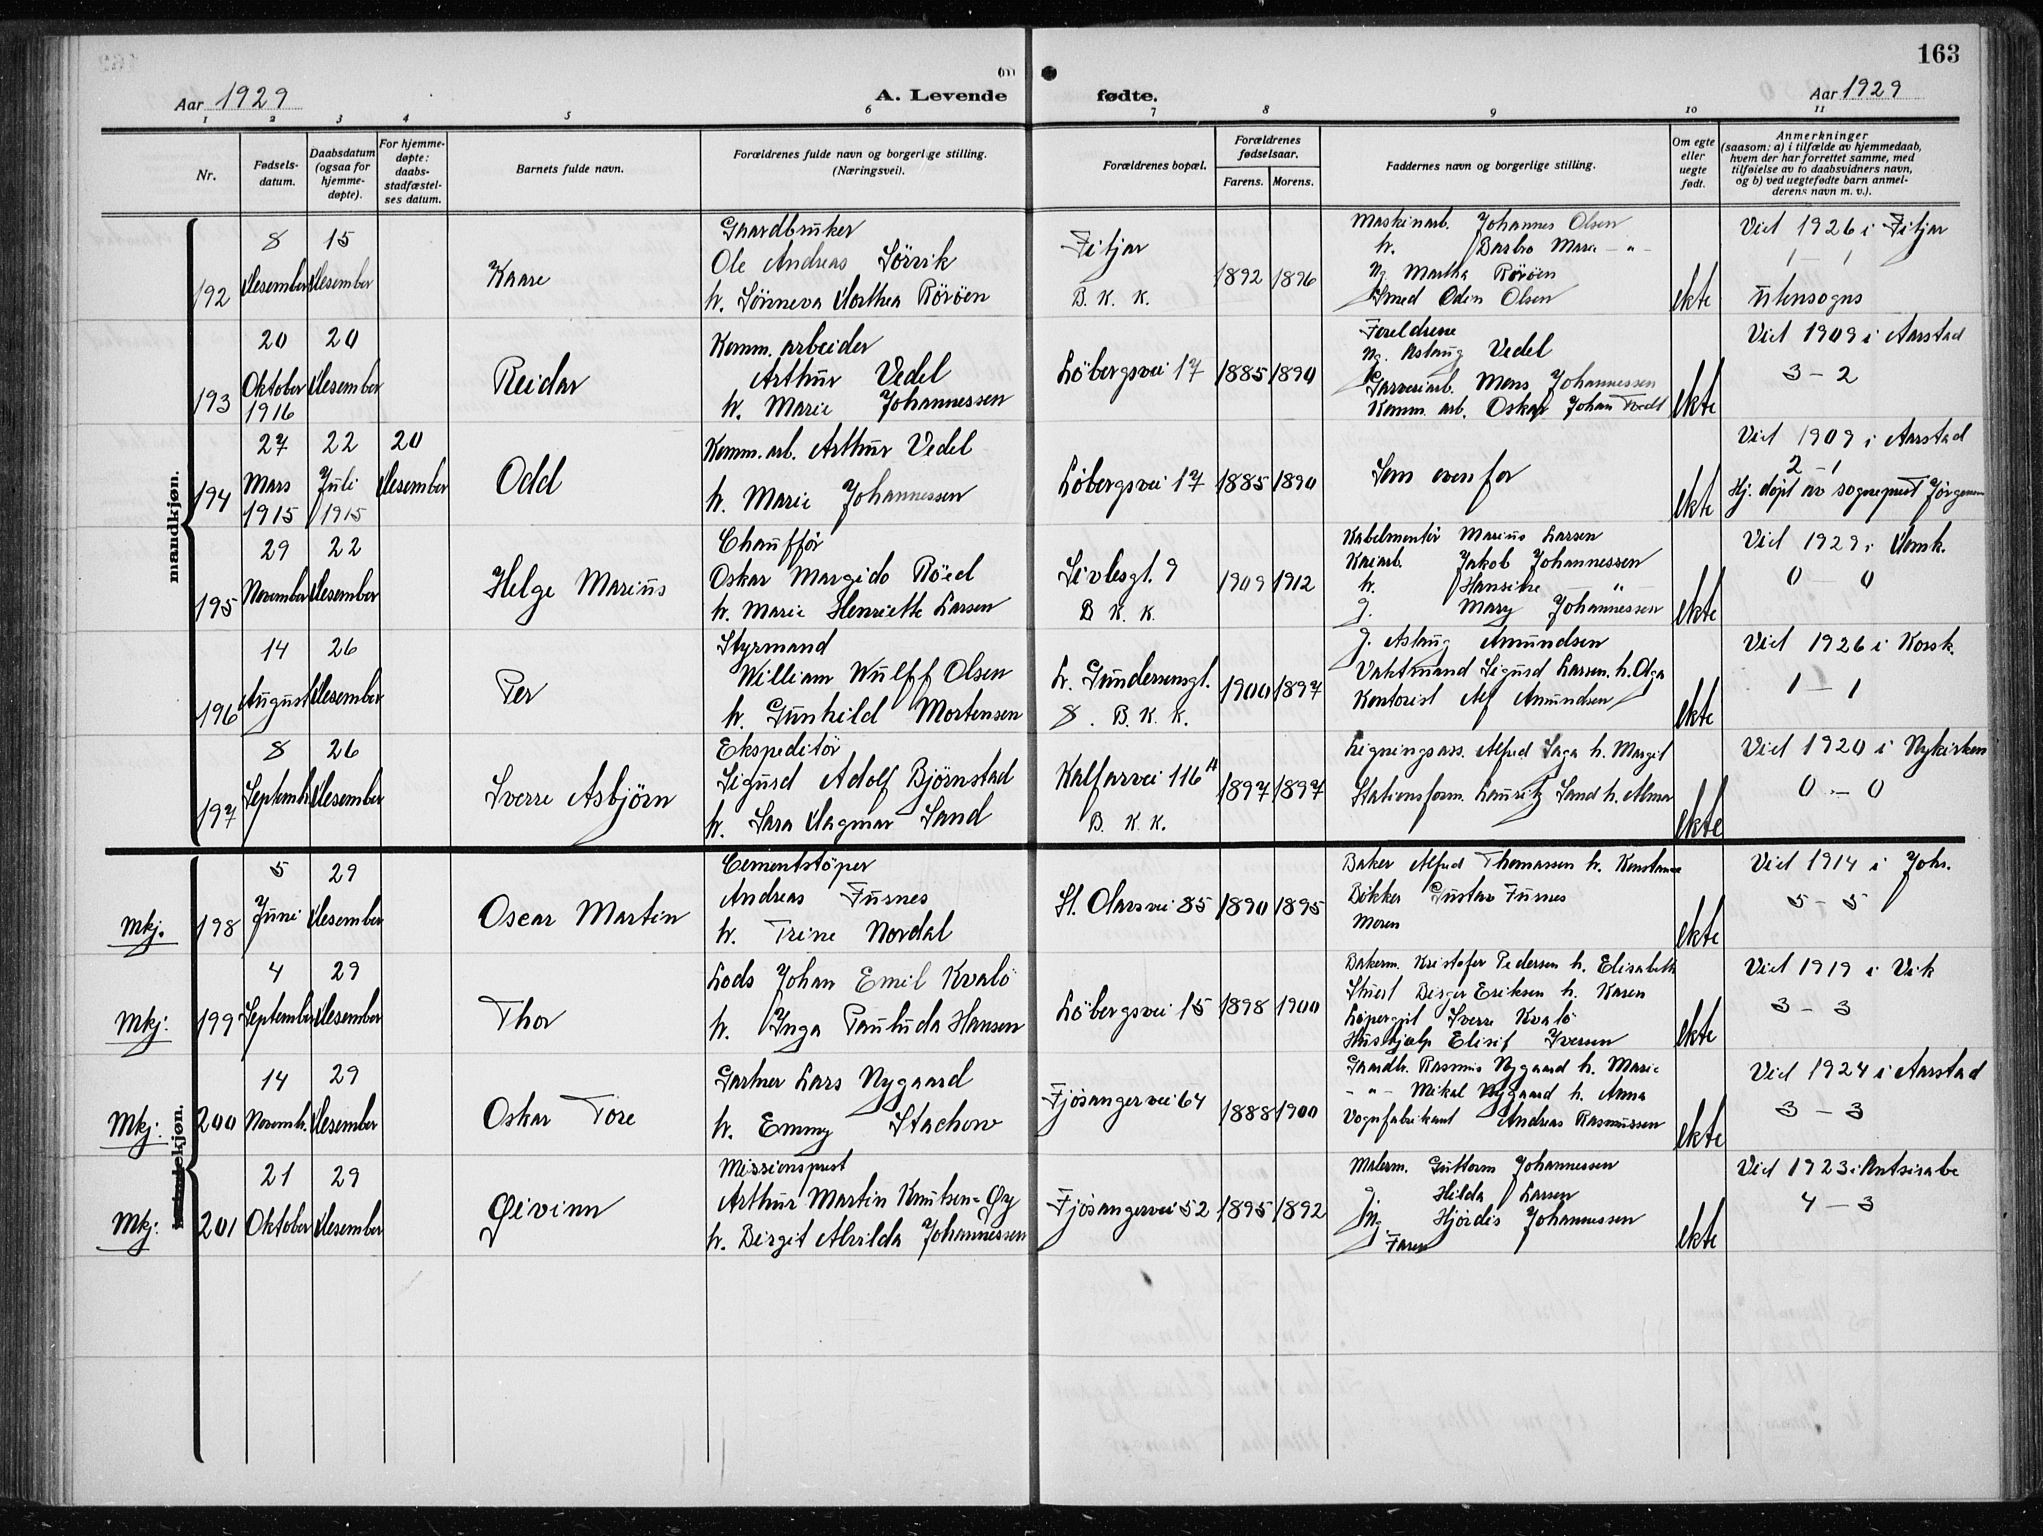 163
Aar 1929
A. Levende fødte.
Aar 1929
1 2 3 4 5 6 7 8 9 10 11
Nr.
Fødsels-
datum.
Daabsdatum
(ogsaa for
hjemme-
døpte).
For hjemme-
døpte:
daabs-
stadfæstel-
ses datum.
Barnets fulde navn.
Forældrenes fulde navn og borgerlige stilling.
(Næringsvei).
Forældrenes bopæl.
Forældrenes
fødselsaar.
Farens. Morens.
Faddernes navn og borgerlige stilling.
Om egte
eller
uegte
født.
Anmerkninger
(saasom: a) i tilfælde av hjemmedaab,
hvem der har forrettet samme, med
tilføielse av to daabsvidners navn,
og b) ved uegtefødte barn anmel-
derens navn m. v.).
mandkjøn.
192
8
Desember
15
Desember
Kaare
Gaardbruker
Ole Andreas Sörvik
h. Sönneva Dorthea Röröen
Fitjar
B. K. K.
1892 1896
Maskinarb. Johannes Olsen
h. Barbro Marie - " -
Ug. Martha Röröen
Smed Odin Olsen
ekte
Viet 1926 i Fitjar
1 - 1
Utensogns
193
20
Oktober
1916
20
Desember
Reidar
Komm. arbeider
Arthur Vedel
h. Marie Johannessen
Löbergsvei 17
1885 1890
Foreldrene
Ug. Aslaug Vedel
Garveriarb. Mons Johannessen
Komm. arb. Oskar Johan Tvedt
ekte
Viet 1909 i Aarstad
3 - 2
194
27
Mars
1915
22
Juli
1915
20
Desember
Odd
Komm. arb. Arthur Vedel
h. Marie Johannessen
Löbergsvei 17
1885 1890
Som ovenfor
ekte
Viet 1909 i Aarstad
2 - 1
Hj. döpt av sogneprest Jørgensen
195
29
November
22
Desember
Helge Marius
Chauffør
Oskar Margido Röed
h. Marie Henriette Larsen
Sivlesgt. 9
B. K. K.
1909 1912
Kabelmontör Marius Larsen
Kaiarb. Jakob Johannessen
h. Hansine "
J. Mary Johannessen
ekte
Viet 1929 i Domk.
0 - 0
196
14
August
26
Desember
Per
Styrmand
William Wulff Olsen
h. Gunhild Mortensen
L. Gundersensgt.
8. B. K. K.
1900 1897
J. Aslaug Amundsen
Vaktmand Sigurd Larsen h. Olga
Kontorist Alf Amundsen
ekte
Viet 1926 i Korsk.
1 - 1
197
8
Septemb.
26
Desember
Sverre Asbjörn
Ekspeditör
Sigurd Adolf Björnstad
h. Sara Dagmar Sand
Kalfarvei 116 A
B. K. K.
1897 1897
Ligningsass. Alfred Saga h. Margit
Stationsform. Lauritz Sand h. Alma
ekte
Viet 1920 i Nykirken
0 - 0
kvindekjøn.
Mkj.
198
5
Juni
29
Desember
Oscar Martin
Cementstöper
Andreas Fusnes
h. Trine Nordal
St. Olavsvei 85
1890 1895
Baker Alfred Thomassen h. Konstanse
Bökker Gustav Fusnes
Moren
ekte
Viet 1914 i Johs.
5 - 5
Mkj:
199
4
September
29
Desember
Thor
Lods Johan Emil Kvalö
h. Inga Pauluda Hansen
Löbergsvei 15
1898 1900
Bakerm. Kristofer Pedersen h. Elisabeth
Stuert Birger Eriksen h. Karen
Löpergut Sverre Kvalö
Hushjælp Elisif Iversen
ekte
Viet 1919 i Vik
3 - 3
Mkj:
200
14
Novemb.
29
Desember
Oskar Tore
Gartner Lars Nygaard
h. Emmy Stachow
Fjösangervei 64
1888 1900
Gaardbr. Rasmus Nygaard h. Marie
- " - Mikal Nygaard h. Anna
Vognfabrikant Andreas Rasmussen
ekte
Viet 1924 i Aarstad
3 - 3
Mkj:
201
21
Oktober
29
Desember
Øivinn
Missionsprest
Arthur Martin Knutsen-Øy
h. Birgit Alvilda Johannessen
Fjösangervei 52
1895 1892
Malerm. Guttorm Johannessen
J. Hilda Larsen
Ug. Hjördis Johannessen
Faren
ekte
Viet 1923 i Antsirabe
4 - 3